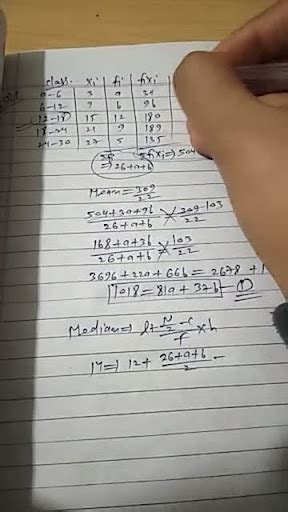 class. xi fi fixi
0-6 3 a 3a
6-12 9 b 9b
12-18 15 12 180
18-24 21 9 189
24-30 27 5 135
⇒ 26+a+b Σfixi ⇒ 504
Mean = 309/22
504+3a+9b/26+a+b 309 103/22
168+a+3b/26+a+b 103/22
3696+22a+66b = 2678 +
1018 = 81a + 37b - ①
Median ⇒ l + N/2 - c/f × h
⇒ 12 + 26+a+b/2 -